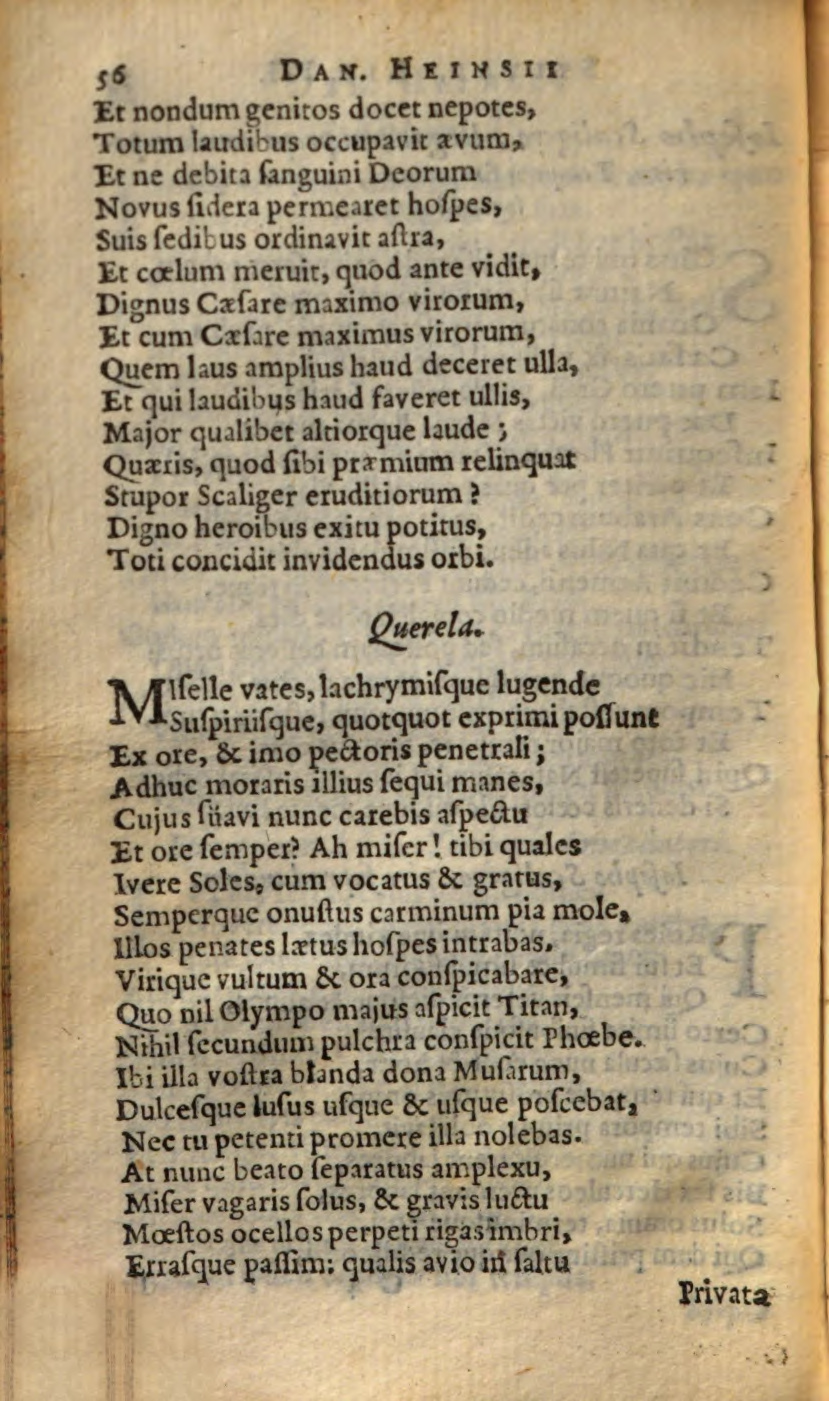 56 DAN. HEINSII
Et nondum genitos docet nepotes,
Totum laudibus occupavit ævum,
Et ne debita ſanguini Deorum
Novus ſidera permearet hoſpes,
Suis ſedibus ordinavit aſtra,
Et cœlum meruit, quod ante vidit,
Dignus Cæſare maximo virorum,
Et cum Cæſare maximus virorum,
Quem laus amplius haud deceret ulla,
Et qui laudibus haud faveret ullis,
Major qualibet altiorque laude ;
Quæris, quod ſibi præmium relinquat
Stupor Scaliger eruditiorum ?
Digno heroibus exitu potitus,
Toti concidit invidendus orbi.
Querela.
MIſelle vates, lachrymiſque lugende
Suſpiriiſque, quotquot exprimi poſſunt
Ex ore, & imo pectoris penetrali ;
Adhuc moraris illius ſequi manes,
Cujus ſüavi nunc carebis aſpectu
Et ore ſemper? Ah miſer! tibi quales
Ivere Soles, cum vocatus & gratus,
Semperque onuſtus carminum pia mole,
Illos penates lætus hoſpes intrabas.
Virique vultum & ora conſpicabare,
Quo nil Olympo majus aſpicit Titan,
Nihil ſecundum pulchra conſpicit Phœbe.
Ibi illa voſtra blanda dona Muſarum,
Dulceſque luſus uſque & uſque poſcebat,
Nec tu petenti promere illa nolebas.
At nunc beato ſeparatus amplexu,
Miſer vagaris ſolus, & gravis luctu
Mœſtos ocellos perpeti rigas imbri,
Erraſque paſſim: qualis avio in ſaltu
Privata